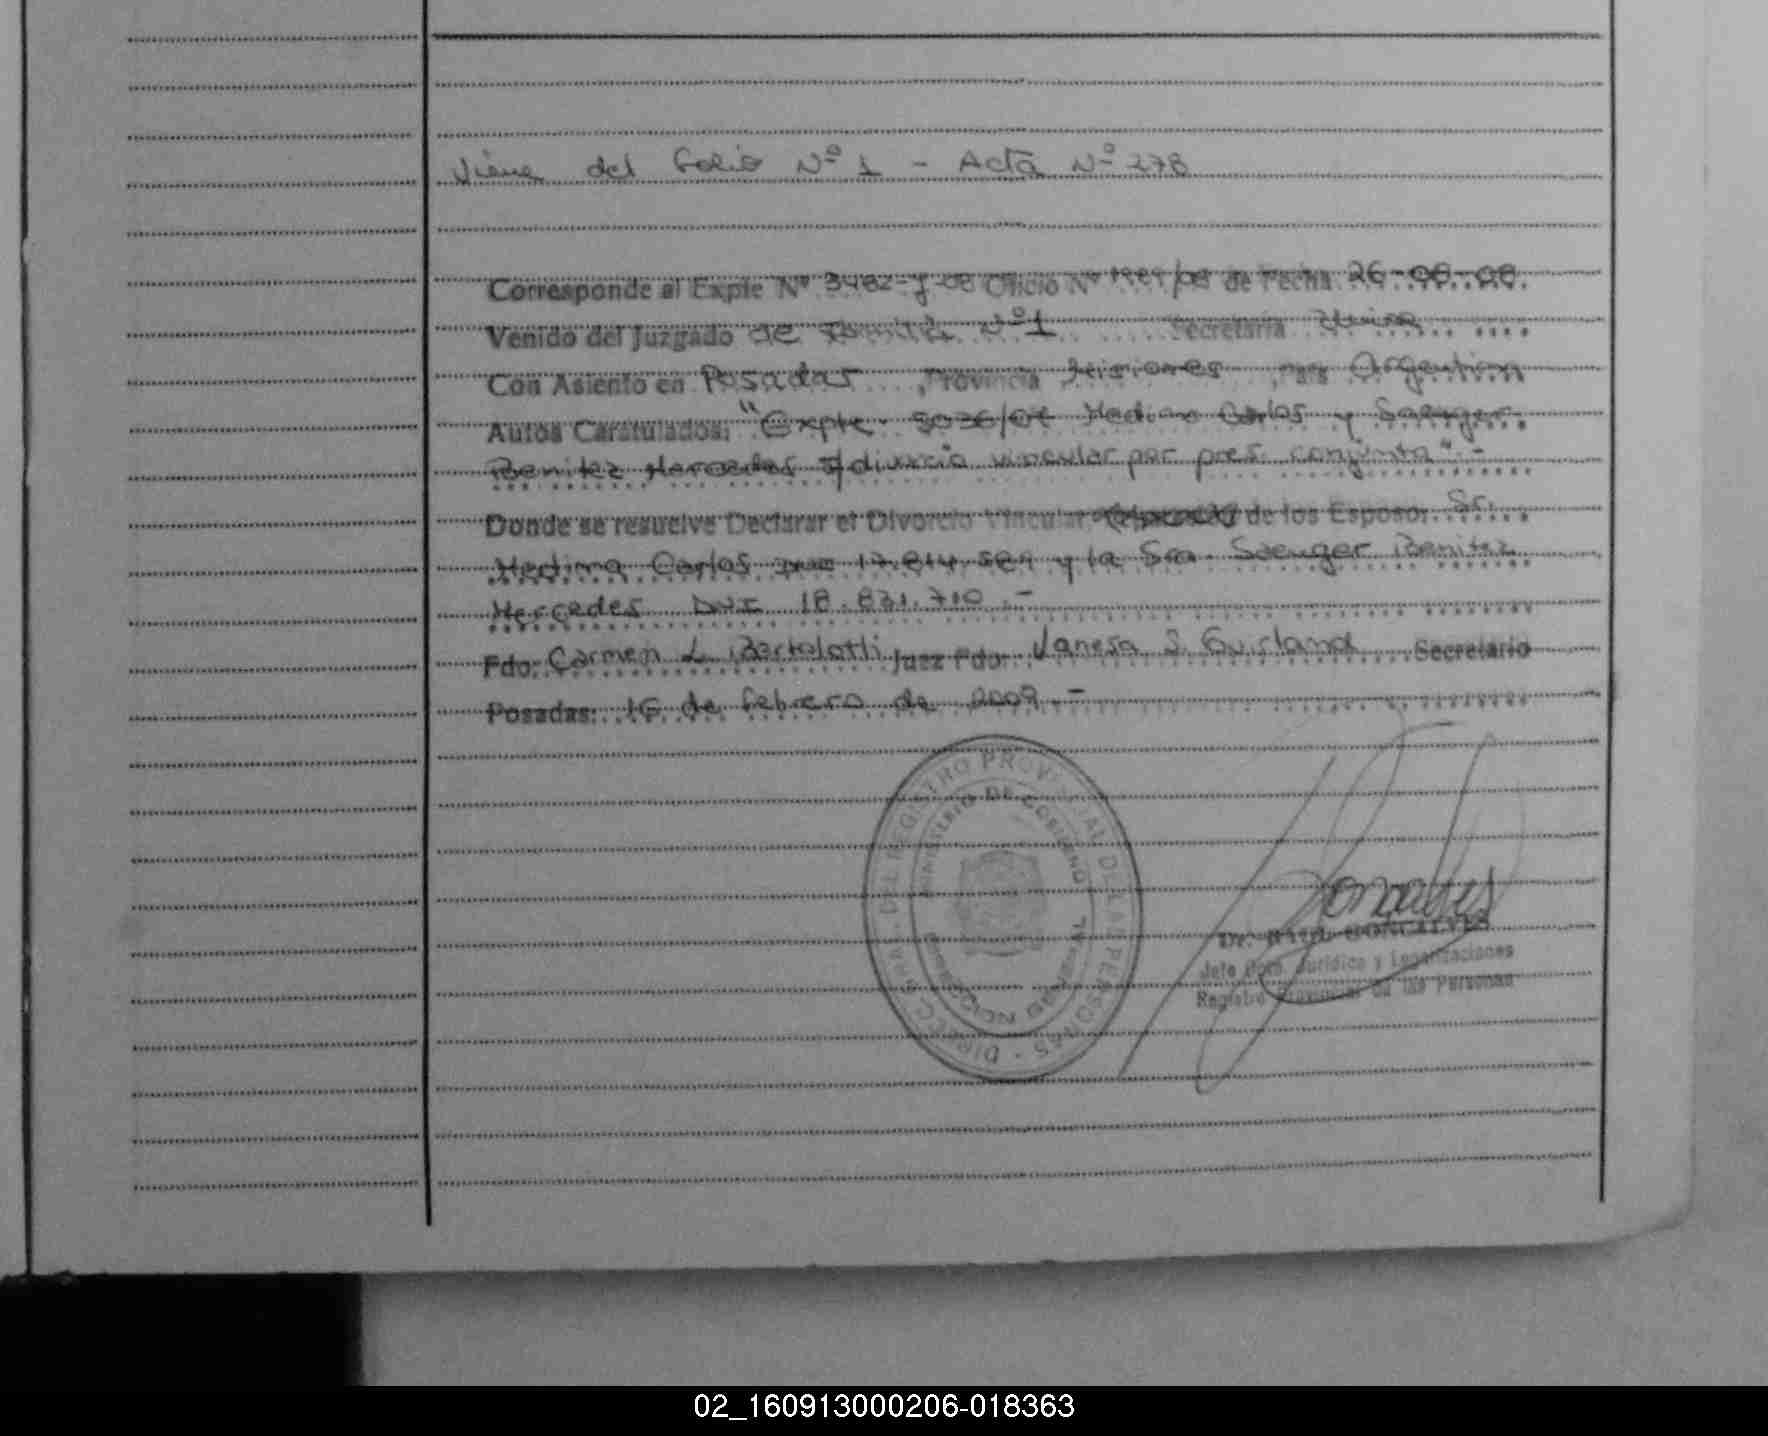 Viene del Folio Nº 1 - Acta Nº 278
Corresponde al Expte Nº 3482-J-08 Oficio Nº /08 de Fecha 26-08-08.
Venido del Juzgado de Familia Nº 1 Secretaría Única
Con Asiento en Posadas, Provincia Misiones, País Argentina
Autos Caratulados: "Expte. Medina Carlos y Saenger
Benitez Mercedes s/divorcio vincular por pres. conjunta".-
Donde se resuelve Declarar el Divorcio Vincular de los Esposos Sr.
Medina Carlos DNI y la Sra. Saenger Benitez
Mercedes DNI 18.831.710.-
Fdo: Carmen L. Bartolotti Juez Fdo: Vanesa S. Gurland Secretario
Posadas: 16 de febrero de 2009.-
DIRECC. GRAL. DEL REGISTRO PROVINCIAL DE LAS PERSONAS
MINISTERIO DE GOBIERNO
Dr. RAUL GONCALVES
Jefe Dpto. Jurídico y Legalizaciones
Registro Provincial de las Personas
02_160913000206-018363